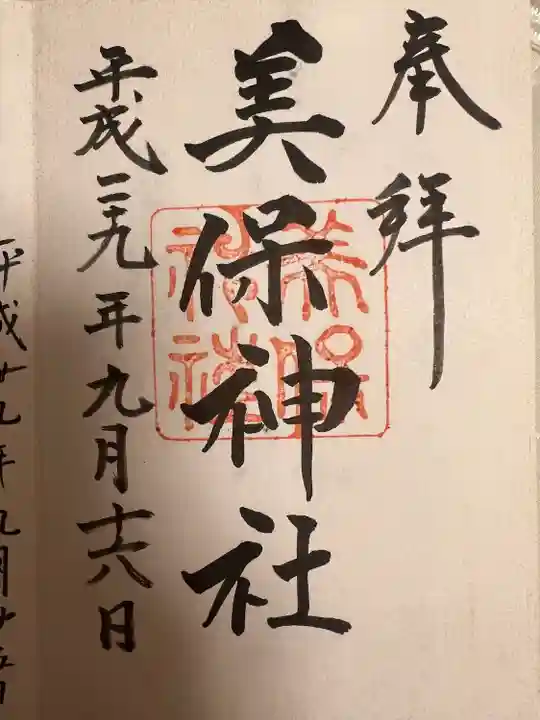 奉拝
美保神社
美保神社
平成二十九年九月十六日
平成廿九年九月廿五日